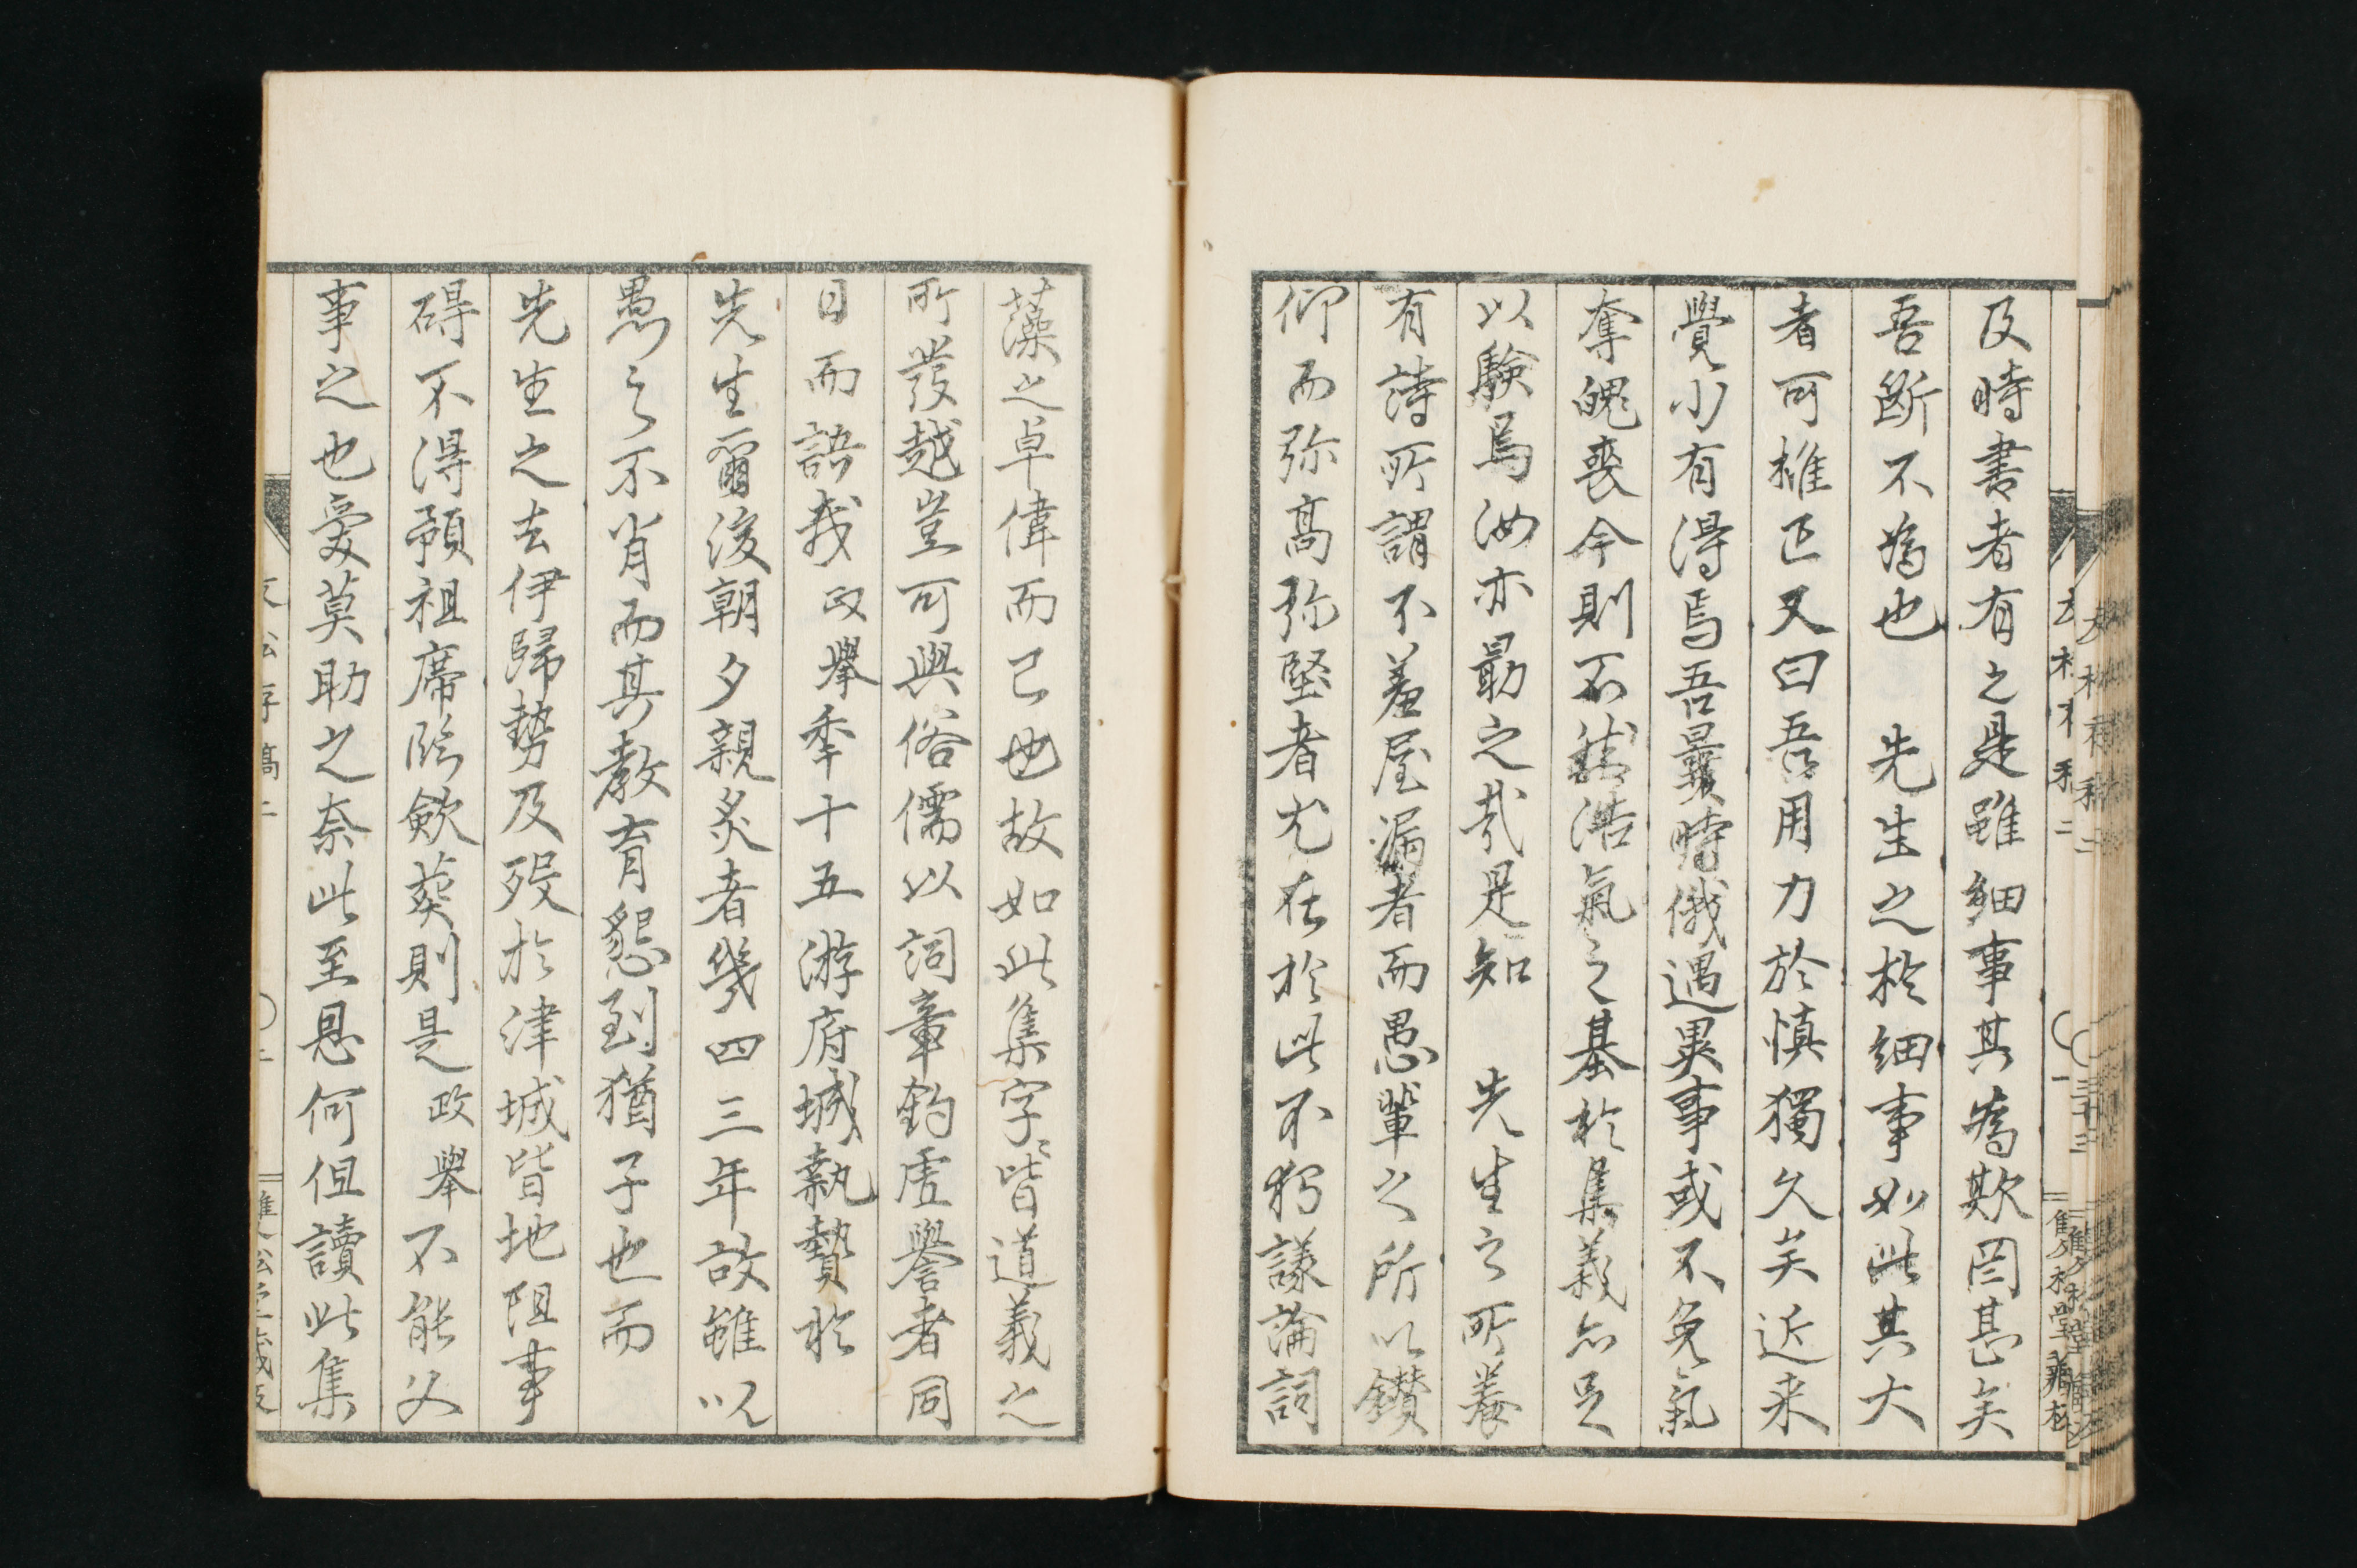 及時書者有之是雖細事其為欺罔甚矣
吾斷不為也　先生之於細事如此其大
者可推已又曰吾用力於慎獨久矣近来
覺小有得焉吾曩時俄遇異事或不免氣
奪魄喪今則不然浩氣之基於集義亦足
以驗焉汝亦勗之哉是知　先生之所養
有詩所謂不羞屋漏者而愚輩之所以鑚
仰而弥髙弥堅者尤在於此不特議論詞
藻之卓偉而已也故如此集字字皆道義之
所發越豈可與俗儒以詞章釣虚譽者同
日而語哉政舉季十五游府城執贄於
先生爾後朝夕親炙者幾四三年故雖以
愚之不肖而其教育懇到猶子也而
先生之去伊歸勢及歿於津城皆地阻事
碍不得預祖席臨歛葬則是政舉不能父
事之也爰莫助之奈此至恩何但讀此集